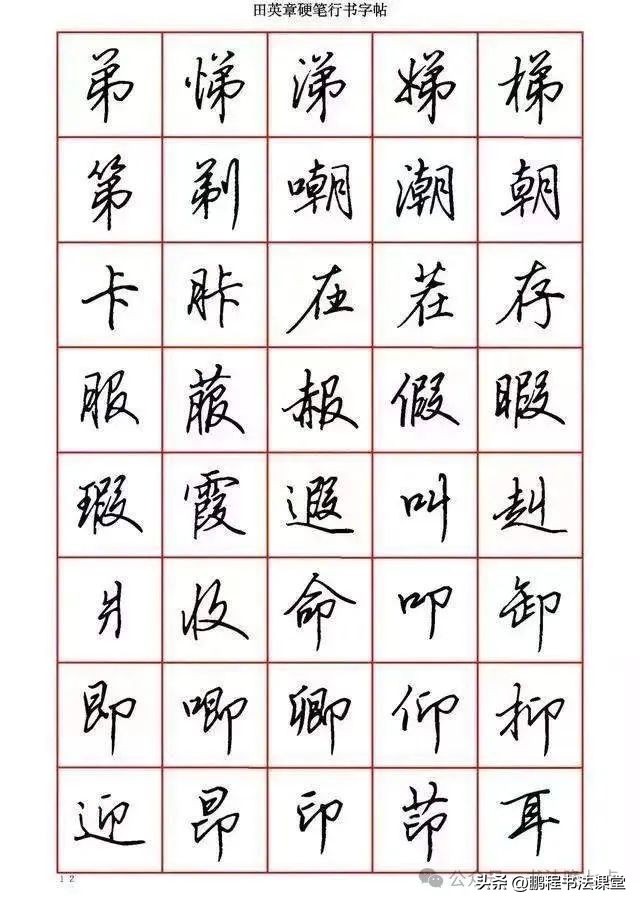 田英章硬笔行书字帖
弟 悌 涕 娣 梯
第 剃 嘲 潮 朝
卡 胩 在 茬 存
服 菔 赧 假 暇
瑕 霞 遐 叫 赳
收 命 叩 卸
即 唧 卿 仰 抑
迎 昂 印 茚 耳
12
头条@鹏程书法课堂